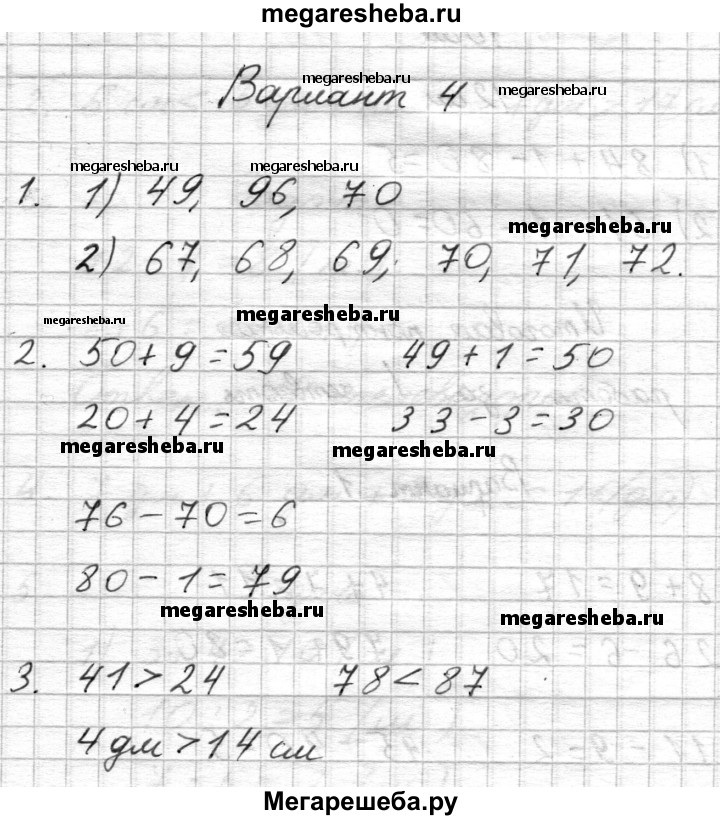 megaresheba.ru
Вариант 4
megaresheba.ru megaresheba.ru
megaresheba.ru megaresheba.ru
1. 1) 49, 96, 70
megaresheba.ru
2) 67, 68, 69, 70, 71, 72.
megaresheba.ru megaresheba.ru
2. 50 + 9 = 59 49 + 1 = 50
20 + 4 = 24 33 - 3 = 30
megaresheba.ru megaresheba.ru
76 - 70 = 6
80 - 1 = 79
megaresheba.ru megaresheba.ru
3. 41 > 24 78 < 87
4 дм > 14 см
Мегарешеба.ру